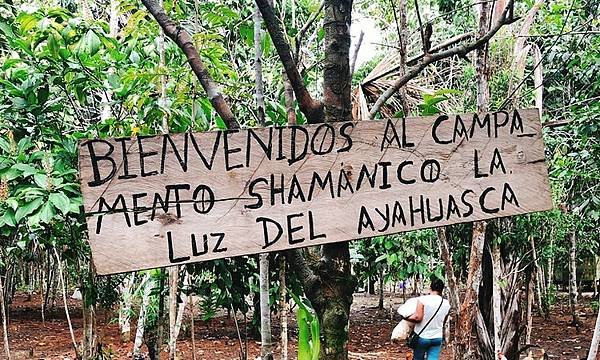 BIENVENIDOS AL CAMPA_
MENTO SHAMÁNICO LA
LUZ DEL AYAHUASCA